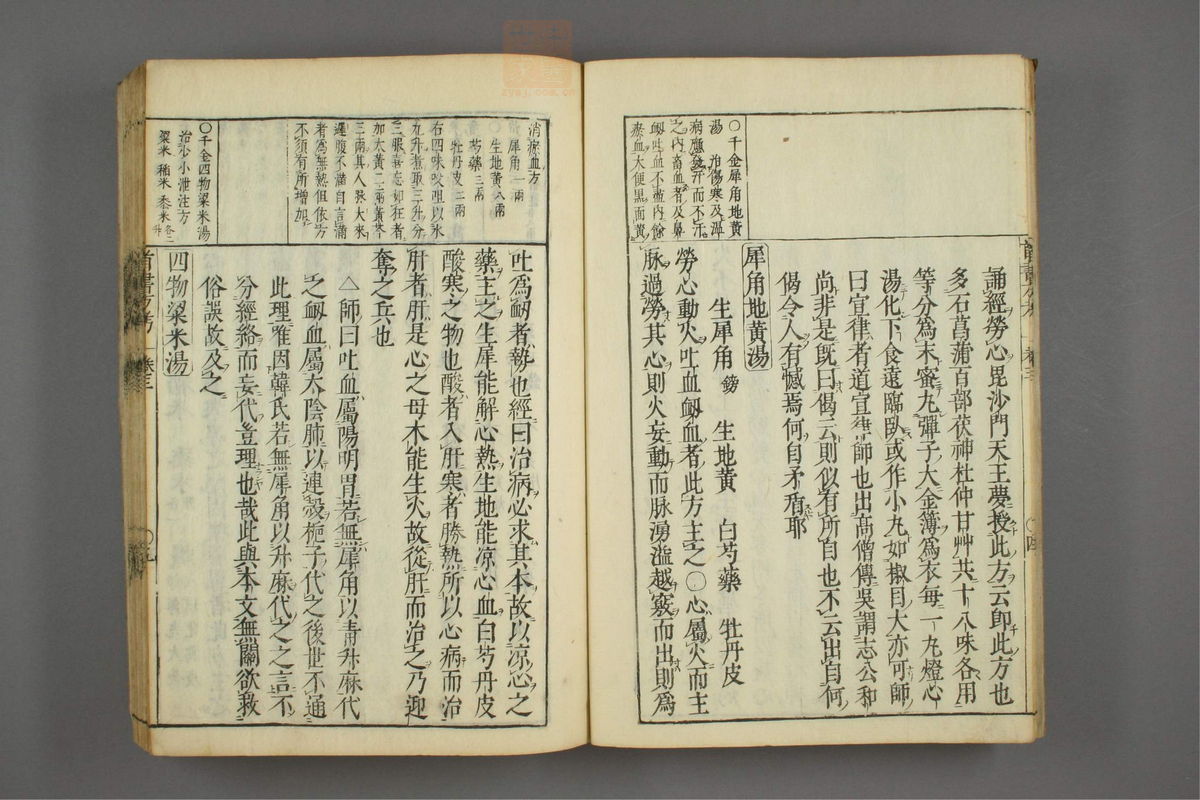 〇千金犀角地黃
湯 治傷寒及溫
病應發汗而不汗
之内畜血者及鼻
衂吐血不盡内餘
瘀血大便黒面黃
誦經勞心毘沙門天王夢授此方云卽此方也
多石菖蒲百部茯神杜仲甘艸共十八味各用
等分爲末蜜丸彈子大金簿爲衣每一丸燈心
湯化下食遠臨臥或作小丸如椒目大亦可師
曰宣律者道宣律師也出高僧傳吳謂志公和
尚非是既曰偈云則似有所自也不云出自何
偈令人有憾焉何自矛盾耶
犀角地黃湯
生犀角 鎊 生地黃 白芍藥 牡丹皮
勞心動火吐血衂血者此方主之〇心屬火而主
脉過勞其心則火妄動而脉湧溢越竅而出則爲
消瘀血方
犀角一兩
生地黃八兩
芍藥三兩
牡丹皮二兩
右四味㕮咀以水
九升煮取三升分
三服喜忘如狂者
加大黃二兩黃芩
三兩其人脉大來
遲腹不滿自言滿
者爲無熱但依方
不須有所增加
〇千金四物粱米湯
治少小泄注方
粱米 稲米 黍米 各三升
吐爲衂者勢也經曰治病必求其本故以凉心之
藥主之生犀能解心熱生地能凉心血白芍丹皮
酸寒之物也酸者入肝寒者勝熱所以心病而治
肝者肝是心之母木能生火故從肝而治之乃迎
奪之兵也
△師曰吐血屬陽明胃若無犀角以靑升麻代
之衂血屬太陰肺以連殼梔子代之後世不通
此理唯因韓氏若無犀角以升麻代之之言不
分經絡而妄代豈理也哉此與本文無關欲救
俗誤故及之
四物粱米湯
首書方考 卷三
〇九